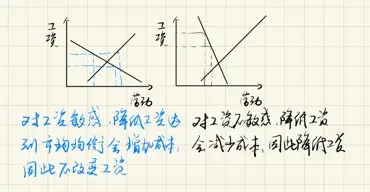 工资
劳动
工资
劳动
对工资敏感,降低工资达
到市场均衡会增加成本,
因此不改变工资
对工资不敏感,降低工资
会减少成本,因此降低工资